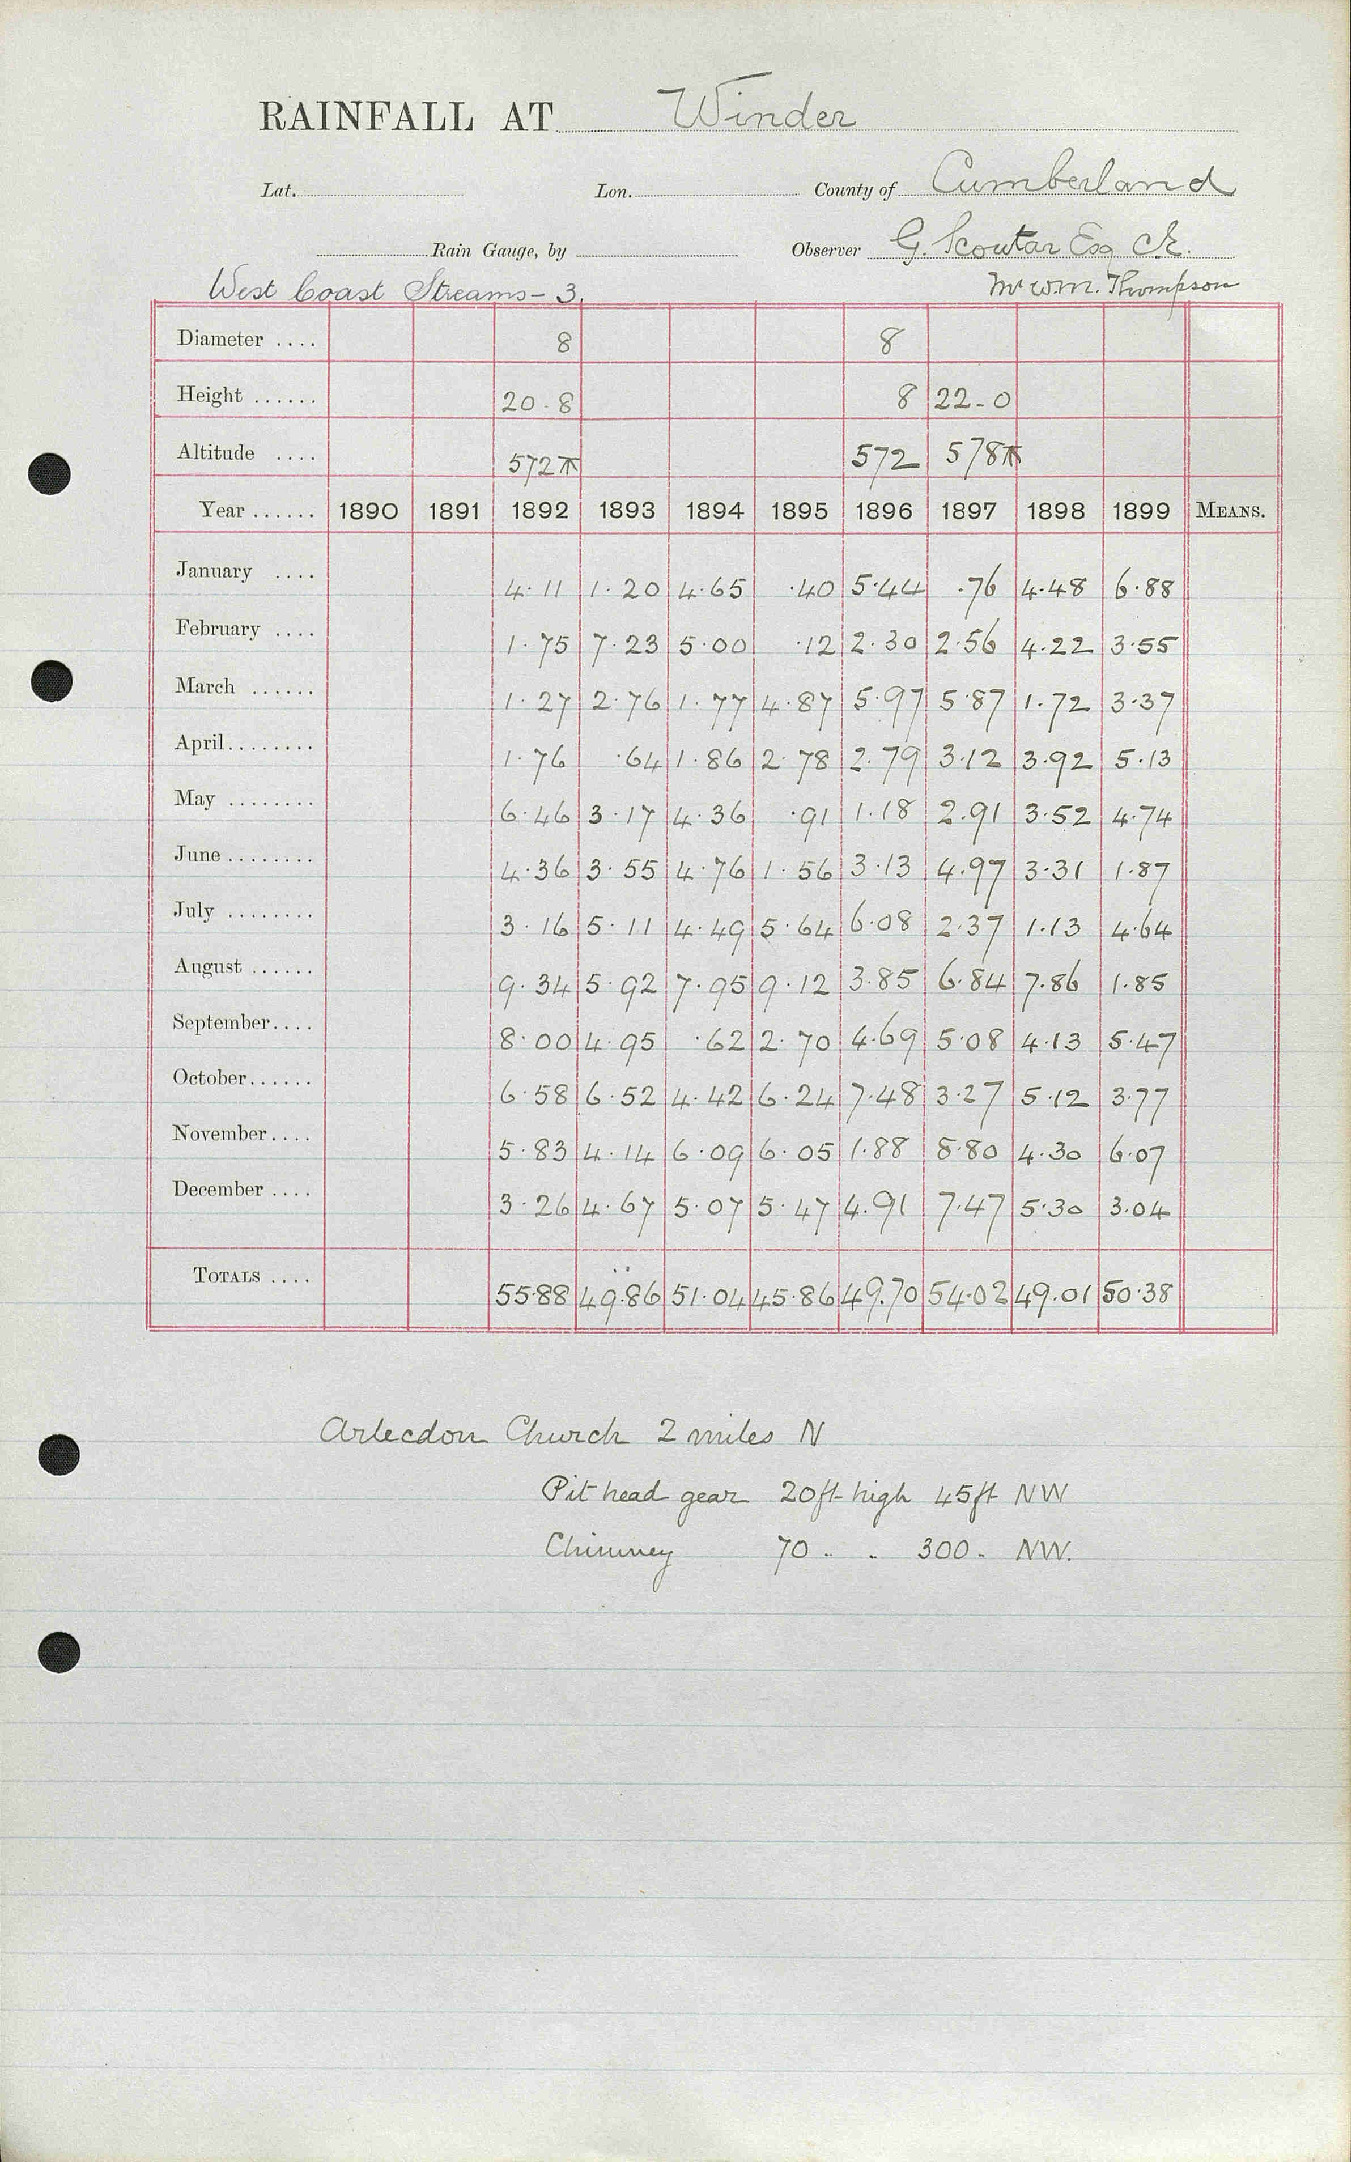 RAINFALL AT Winder
Lat. Lon. County of Cumberland
Rain Gauge, by Observer G. Scoular Esq C.E.
West Coast Streams - 3. Mr Wm. Thompson
Diameter .... 8 8
Height ...... 20.8 8 22-0
Altitude .... 572 572 578
Year ...... 1890 1891 1892 1893 1894 1895 1896 1897 1898 1899 MEANS.
January .... 4.11 1.20 4.65 .40 5.44 .76 4.48 6.88
February .... 1.75 7.23 5.00 .12 2.30 2.56 4.22 3.55
March ...... 1.27 2.76 1.77 4.87 5.97 5.87 1.72 3.37
April........ 1.76 .64 1.86 2.78 2.79 3.12 3.92 5.13
May ........ 6.46 3.17 4.36 .91 1.18 2.91 3.52 4.74
June ........ 4.36 3.55 4.76 1.56 3.13 4.97 3.31 1.87
July ........ 3.16 5.11 4.49 5.64 6.08 2.37 1.13 4.64
August ...... 9.34 5.92 7.95 9.12 3.85 6.84 7.86 1.85
September.... 8.00 4.95 .62 2.70 4.69 5.08 4.13 5.47
October...... 6.58 6.52 4.42 6.24 7.48 3.27 5.12 3.77
November.... 5.83 4.14 6.09 6.05 1.88 8.80 4.30 6.07
December .... 3.26 4.67 5.07 5.47 4.91 7.47 5.30 3.04
TOTALS .... 55.88 49.86 51.04 45.86 49.70 54.02 49.01 50.38
Arlecdon Church 2 miles N
Pit head gear 20ft high 45ft NW
Chimney 70 . . 300 . NW.